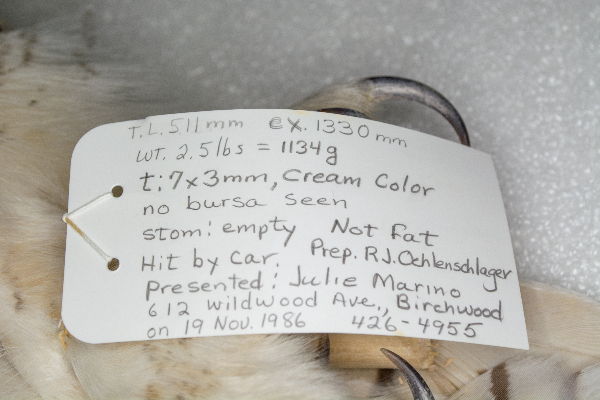 T.L. 511mm ex. 1330mm
WT. 2.5lbs = 1134g
t: 7x3mm, Cream Color
no bursa seen
stom: empty Not Fat
Hit by Car. Prep. R.J. Oehlenschlager
Presented: Julie Marino
612 Wildwood Ave., Birchwood
on 19 Nov. 1986 426-4955